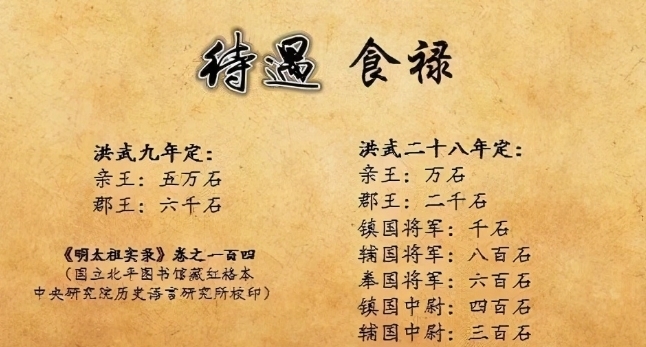 待遇 食禄
洪武九年定：
亲王：五万石
郡王：六千石
《明太祖实录》卷之一百四
（国立北平图书馆藏红格本
中央研究院历史语言研究所校印）
洪武二十八年定：
亲王：万石
郡王：二千石
镇国将军：千石
辅国将军：八百石
奉国将军：六百石
镇国中尉：四百石
辅国中尉：三百石